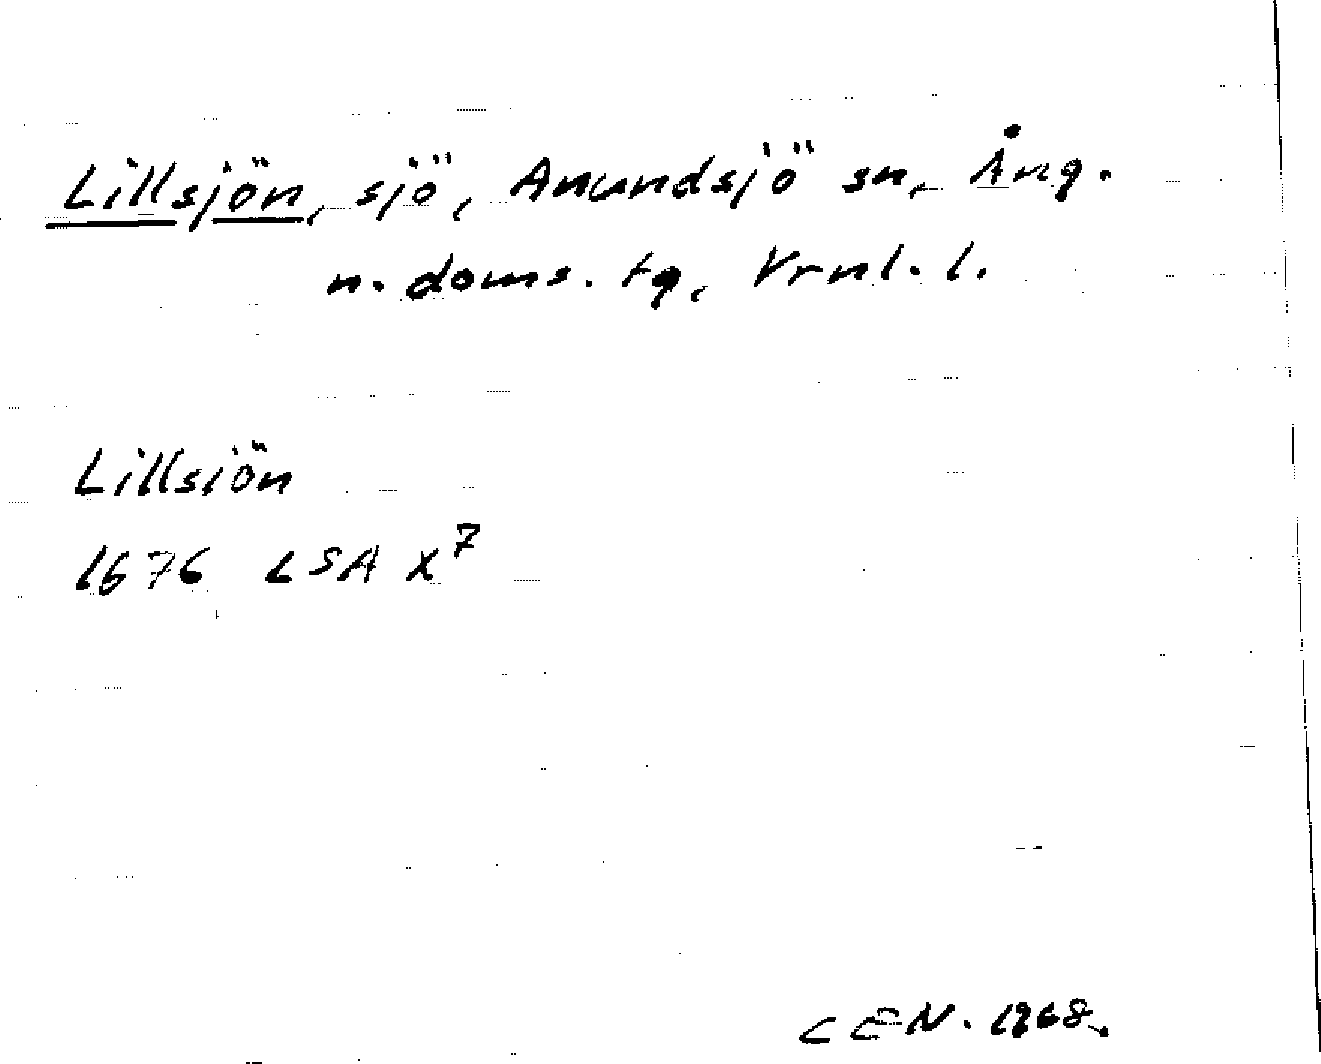 Lillsjön, sjö, Anundsjö sn, Ång.
n. doms. tg, Vrnl. l.
Lillsiön
1676 LSA X⁷
CEN. 1968.